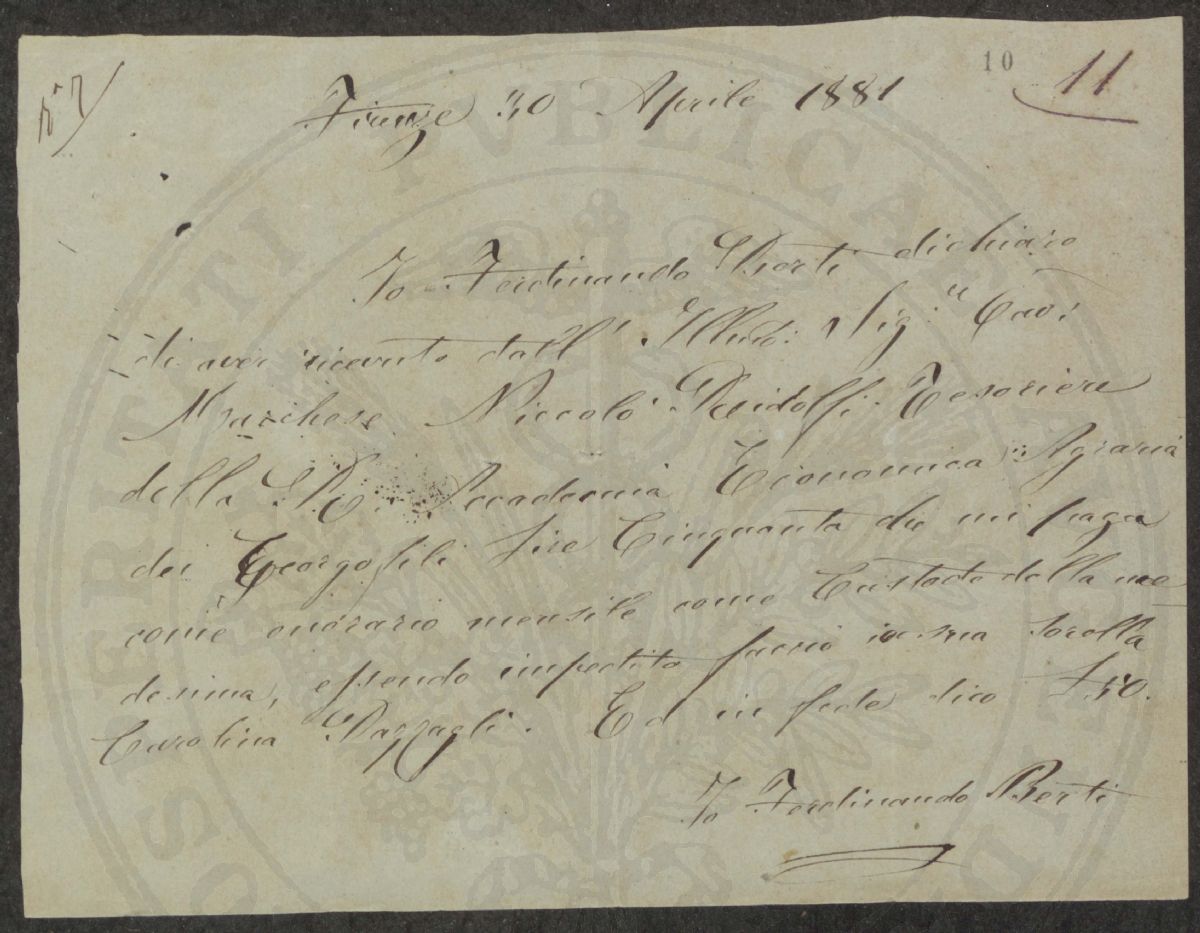 N° 7
10
11
Firenze 30 Aprile 1881
Io Ferdinando Berti dichiaro
di aver ricevuto dall' Illmo: Sig:re Cav:
Marchese Niccolò Ridolfi Tesoriere
della R. Accademia Economica Agraria
dei Georgofili Lire Cinquanta che mi paga
come onorario mensile come Custode della me
desima, essendo impedito faccio la sua sorella
Carolina Pazzagli. Ed in fede dico £50.
Io Ferdinando Berti
PROSPERITATI PUBLICAE AUGENDAE